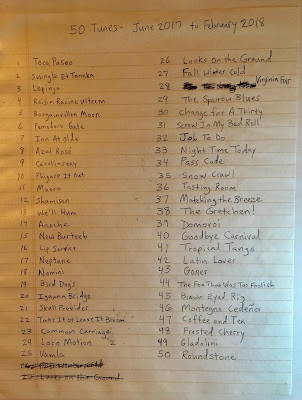 50 Tunes - June 2017 to February 2018
1 Toca Paseo
2 Swingle Et Taneka
3 Lopinjo
4 Raisin Racine Ulteem
5 Bougainvillea Moon
6 Pomodoro Gate
7 Inn At Olde
8 Azul Rose
9 Carillonsexy
10 Phigure It Out
11 Maoro
12 Shamison
13 We'll Hum
14 Anoche
15 New Burtech
16 Lip Service
17 Neptune
18 Nomini
19 Bird Dogs
20 Iguana Bridge
21 Skull Provides
22 Take It or Leave It
23 Common Carriage
24 Loco Motion 2
25 Vamla
26 Fall Winter Cold
27 Looks on the Ground
26 Looks on the Ground
27 Fall Winter Cold
28 Virginia Fair
29 The Sparrow Blues
30 Change For A Thirty
31 Screw In My Bed Roll
32 Job To Do
33 Night Time Today
34 Pass Code
35 Snow Crawl
36 Tasting Room
37 Matching the Breeze
38 The Gretchen!
39 Domoroi
40 Goodbye Carnival
41 Tropical Tango
42 Latin Lover
43 Goner
44 The Fox That Was Too Foolish
45 Brown Eyed Rig
46 Montegne Cedeño
47 Coffee and Tea
48 Frosted Cherry
49 Gladolini
50 Roundstone